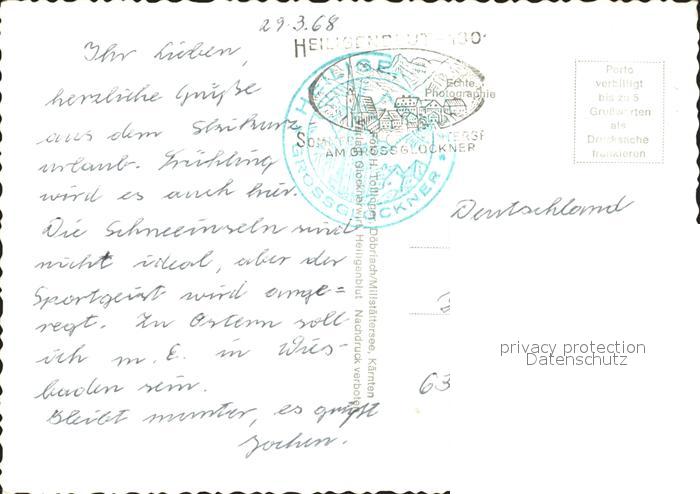 29.3.68
Ihr Lieben,
herzliche Grüße
aus dem Skikurz
urlaub. Frühling
wird es auch hier.
Die Schneeinseln sind
nicht ideal, aber der
Sportgeist wird ange=
regt. Zu Ostern soll
ich m. E. in Wies-
baden sein.
Bleibt munter, es grüßt
Jochen.
HEILIGENBLUT
AM GROSSGLOCKNER
GROSSGLOCKNER
Echte
Photographie
Döbriach/Millstättersee, Kärnten
Heiligenblut Nachdruck verboten
Porto
verbilligt
bis zu 5
Grußworten
als
Drucksache
frankieren
Deutschland
63
privacy protection
Datenschutz